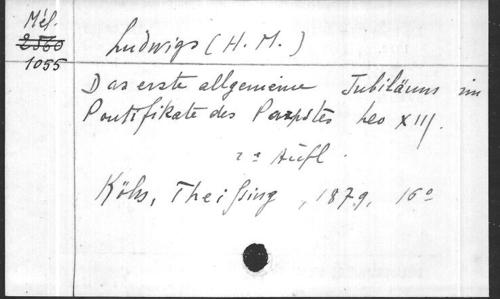 Mél.
2560
1055
Ludwigs (H. M.)
Das erste allgemeine Jubiläum im
Pontifikate des Papstes Leo XIII.
2e Aufl.
Köln, Theissing, 1879, 16o